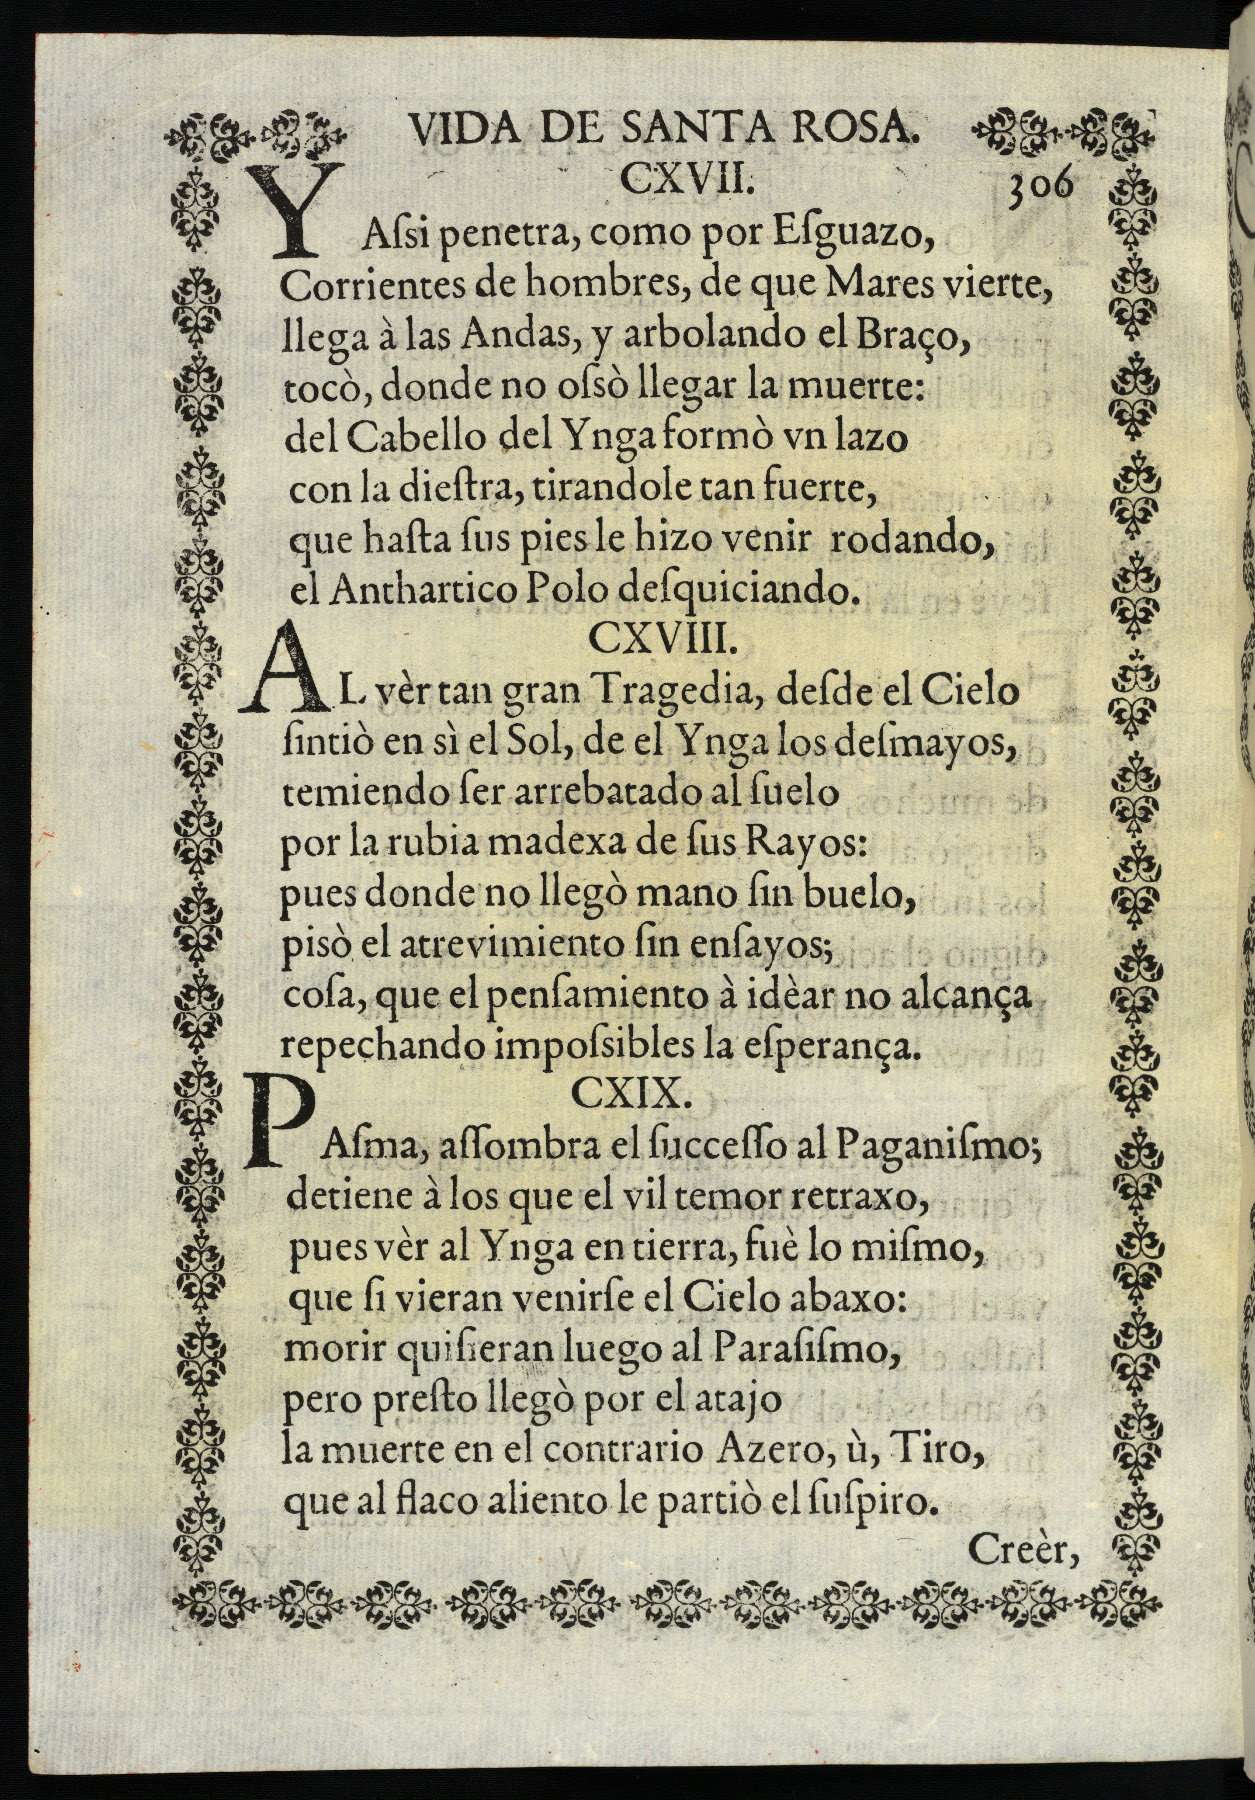 VIDA DE SANTA ROSA.
CXVII. 306
Y Aſsi penetra, como por Eſguazo,
Corrientes de hombres, de que Mares vierte,
llega à las Andas, y arbolando el Braço,
tocò, donde no oſsò llegar la muerte:
del Cabello del Ynga formò vn lazo
con la dieſtra, tirandole tan fuerte,
que haſta ſus pies le hizo venir rodando,
el Anthartico Polo deſquiciando.
CXVIII.
AL vèr tan gran Tragedia, deſde el Cielo
ſintiò en sì el Sol, de el Ynga los deſmayos,
temiendo ſer arrebatado al ſuelo
por la rubia madexa de ſus Rayos:
pues donde no llegò mano ſin buelo,
pisò el atrevimiento ſin enſayos;
coſa, que el penſamiento à idèar no alcança
repechando impoſsibles la eſperança.
CXIX.
PAſma, aſſombra el ſucceſſo al Paganiſmo;
detiene à los que el vil temor retraxo,
pues vèr al Ynga en tierra, fuè lo miſmo,
que ſi vieran venirſe el Cielo abaxo:
morir quiſieran luego al Paraſiſmo,
pero preſto llegò por el atajo
la muerte en el contrario Azero, ù, Tiro,
que al flaco aliento le partiò el ſuſpiro.
Creèr,